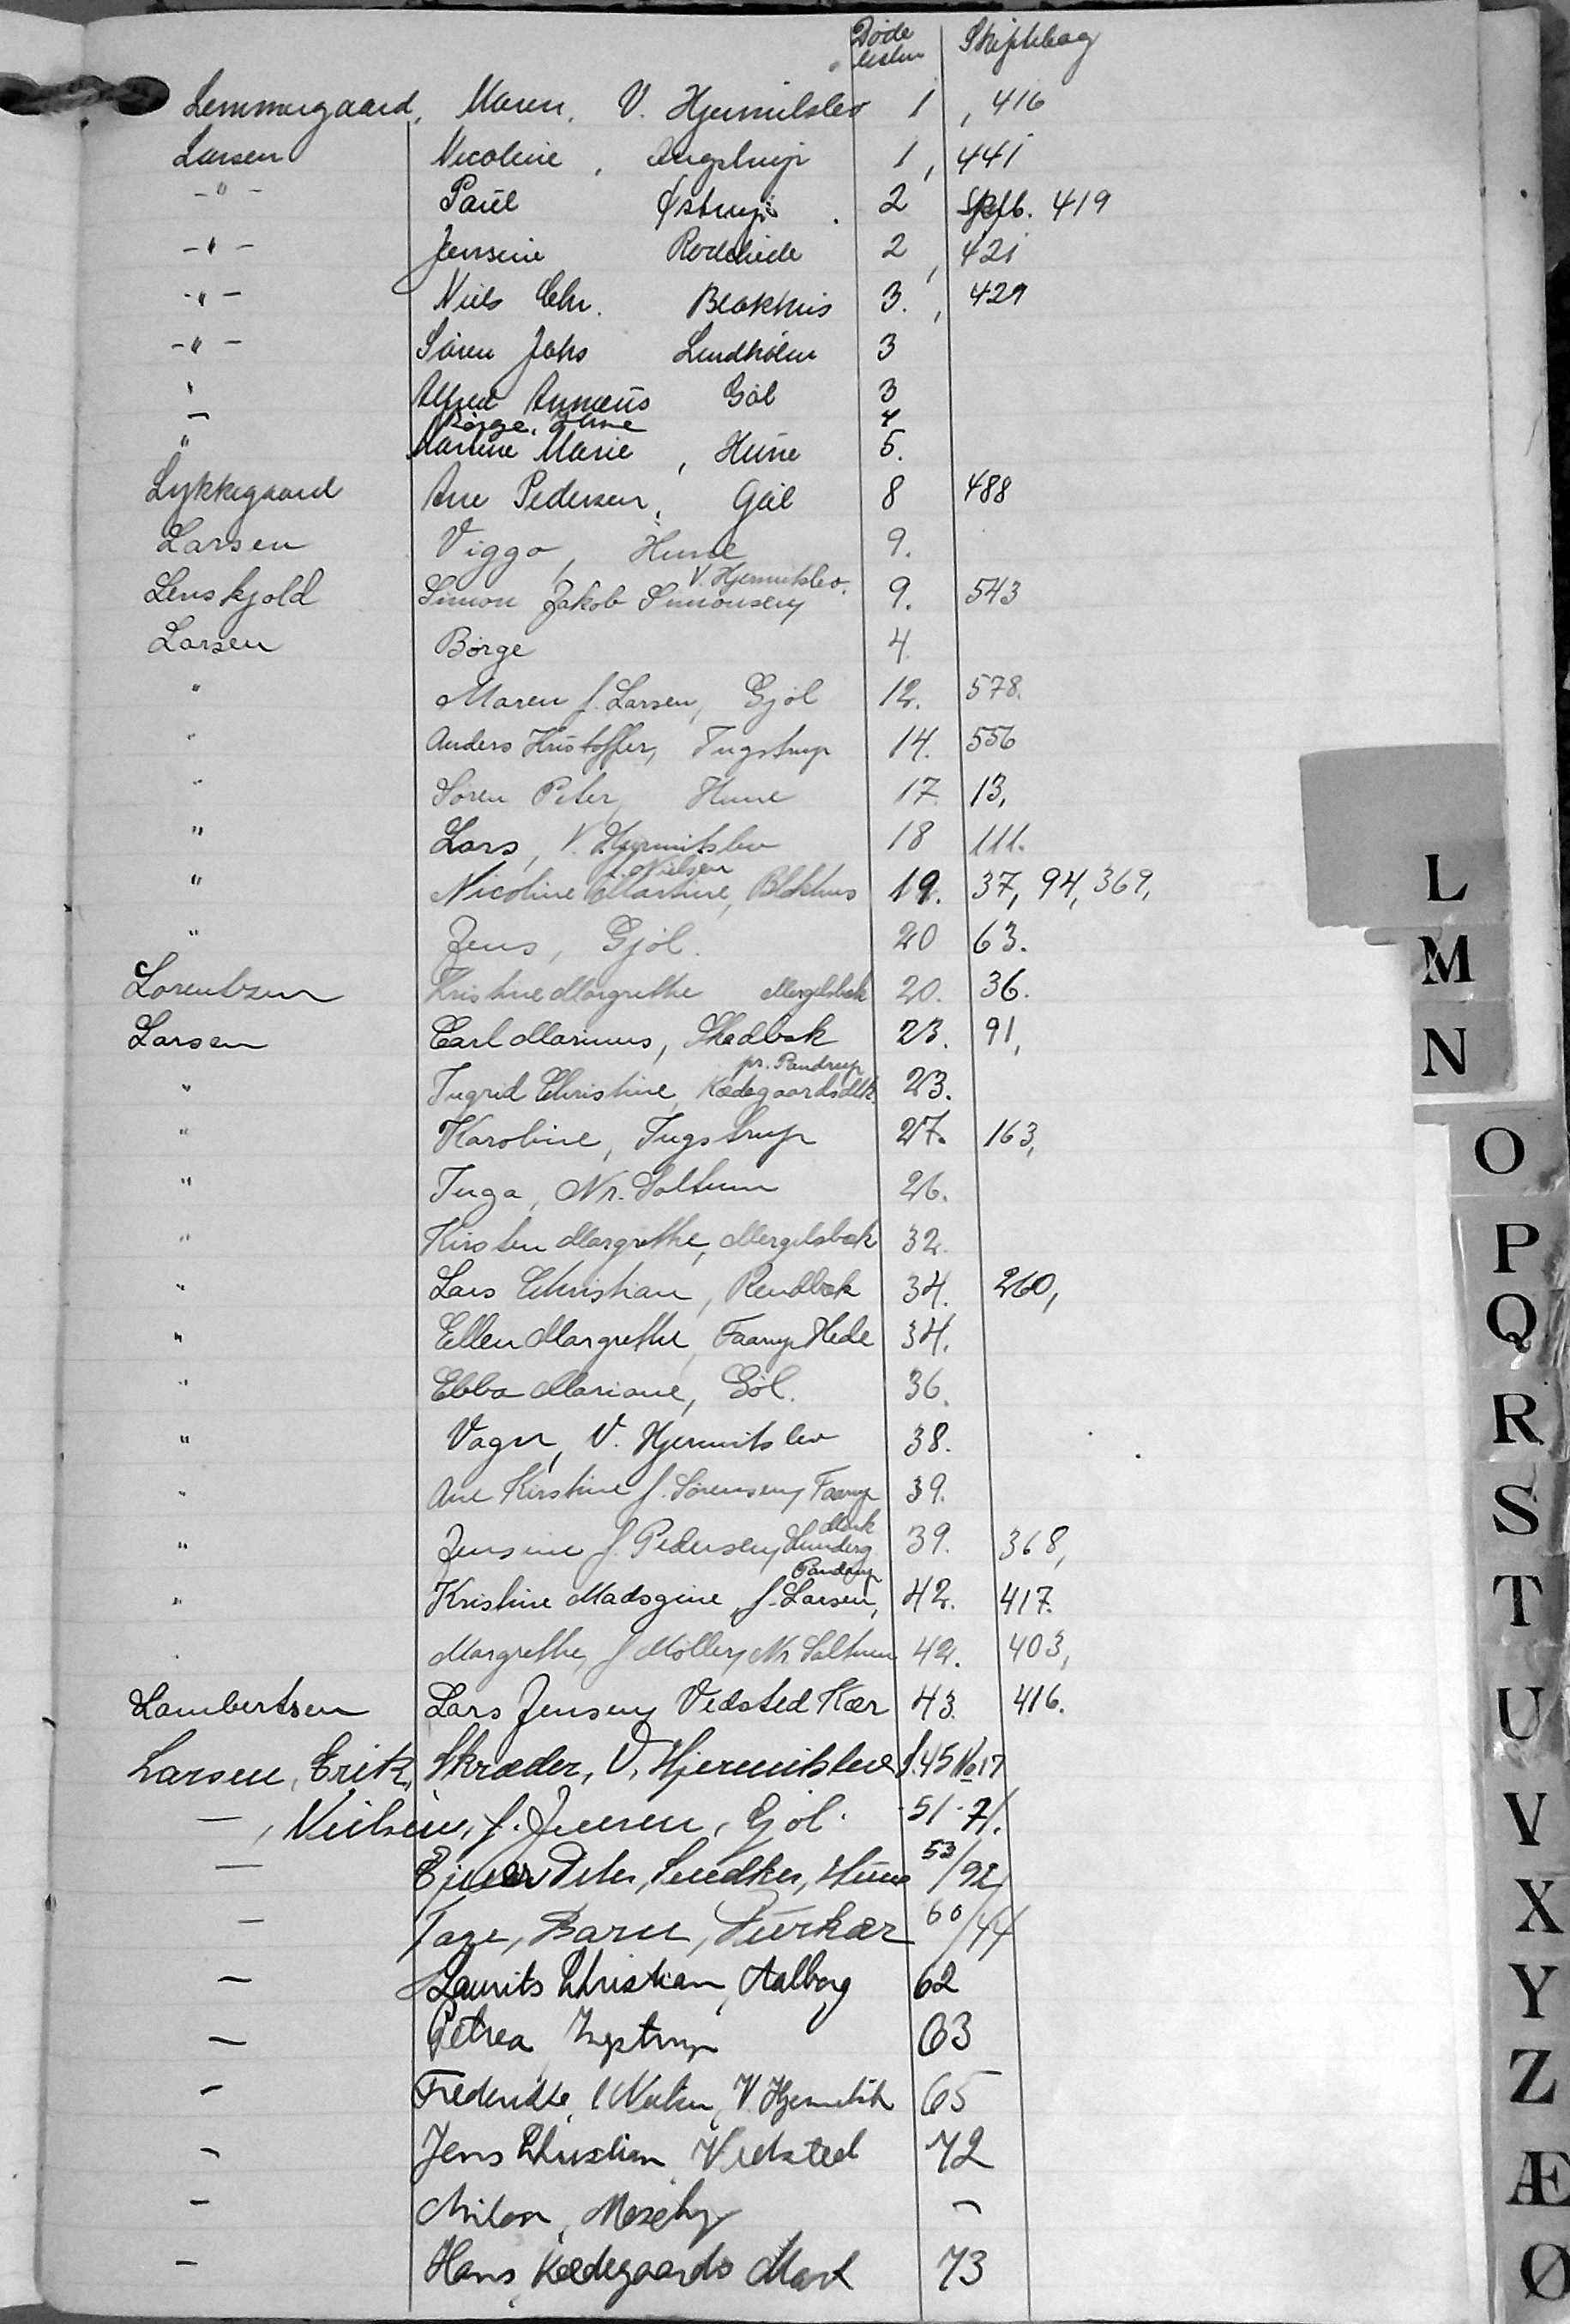 Døde listen Skiftebog
Lemmergaard, Maren, V. Hjermitslev 1, 416
Larsen Nicoline, Ingstrup 1, 441
-"- Paul Østrup. 2 Skfb. 419
-"- Jensine Rødhede 2, 421
-"- Niels Chr. Blokhus 3., 429
-"- Søren Johs Lindholm 3
" Alfred Gøl 3
- Børge, Hune 4
" Martine Marie, Hune 5.
Lykkegaard Ane Pedersen, Gøl 8 488
Larsen Viggo, Hune 9.
V. Hjermitslev.
Lenskjold Simon Jakob Simonsen 9. 543
Larsen Børge 4.
" Maren f. Larsen, Gjøl 12. 578.
" Anders Kristoffer, Ingstrup 14. 556
" Søren Peter, Hune 17. 13,
" Lars, V. Hjermitslev 18 111.
f. Nielsen
" Nicoline Martine, Blokhus 19. 37, 94, 369,
" Jens, Gjøl. 20 63.
Lorentzen Kristine Margrethe Mergelsbæk 20. 36.
Larsen Carl Marinus, Skadbæk 23. 91,
pr. Pandrup
" Ingrid Christine, Kædegaardsmk. 23.
" Karoline, Ingstrup 27. 163,
" Inga, Nr. Saltum 26.
" Kirsten Margrethe, Mergelsbæk 32.
" Lars Christian, Rendbæk 34. 260,
" Ellen Margrethe, Faarup Hede 34.
" Ebba Mariane, Gøl. 36.
" Vagn, V. Hjermitslev 38.
" Ane Kirstine f. Sørensen, Faarup 39.
Mark
" Jensine f. Pedersen, Lunderg 39. 368,
Pandrup
" Kristine Madsgine, f. Larsen, 42. 417.
" Margrethe, f Møller, Nr. Saltum 42. 403,
Lambertsen Lars Jensen, Vedsted Kær 43. 416.
Larsen, Erik, Skræder, V. Hjermitslev S. 45 No 17
—, Nielsine, f. Jensen, Gjøl. 51-71.
— Ejner Peter, Snedker, Hune 53/92
— Tage, Barn, 60/44
— Laurits Christian, Aalborg 62
— Petrea Ingstrup 63
— Frederikke, f Nielsen, V. Hjermitsl 65
— Jens Christian, Vedsted 72
— Milon, Moseby —
— Hans, Kædegaards Mark 73
L
M
N
O
P
Q
R
S
T
U
V
X
Y
Z
Æ
Ø